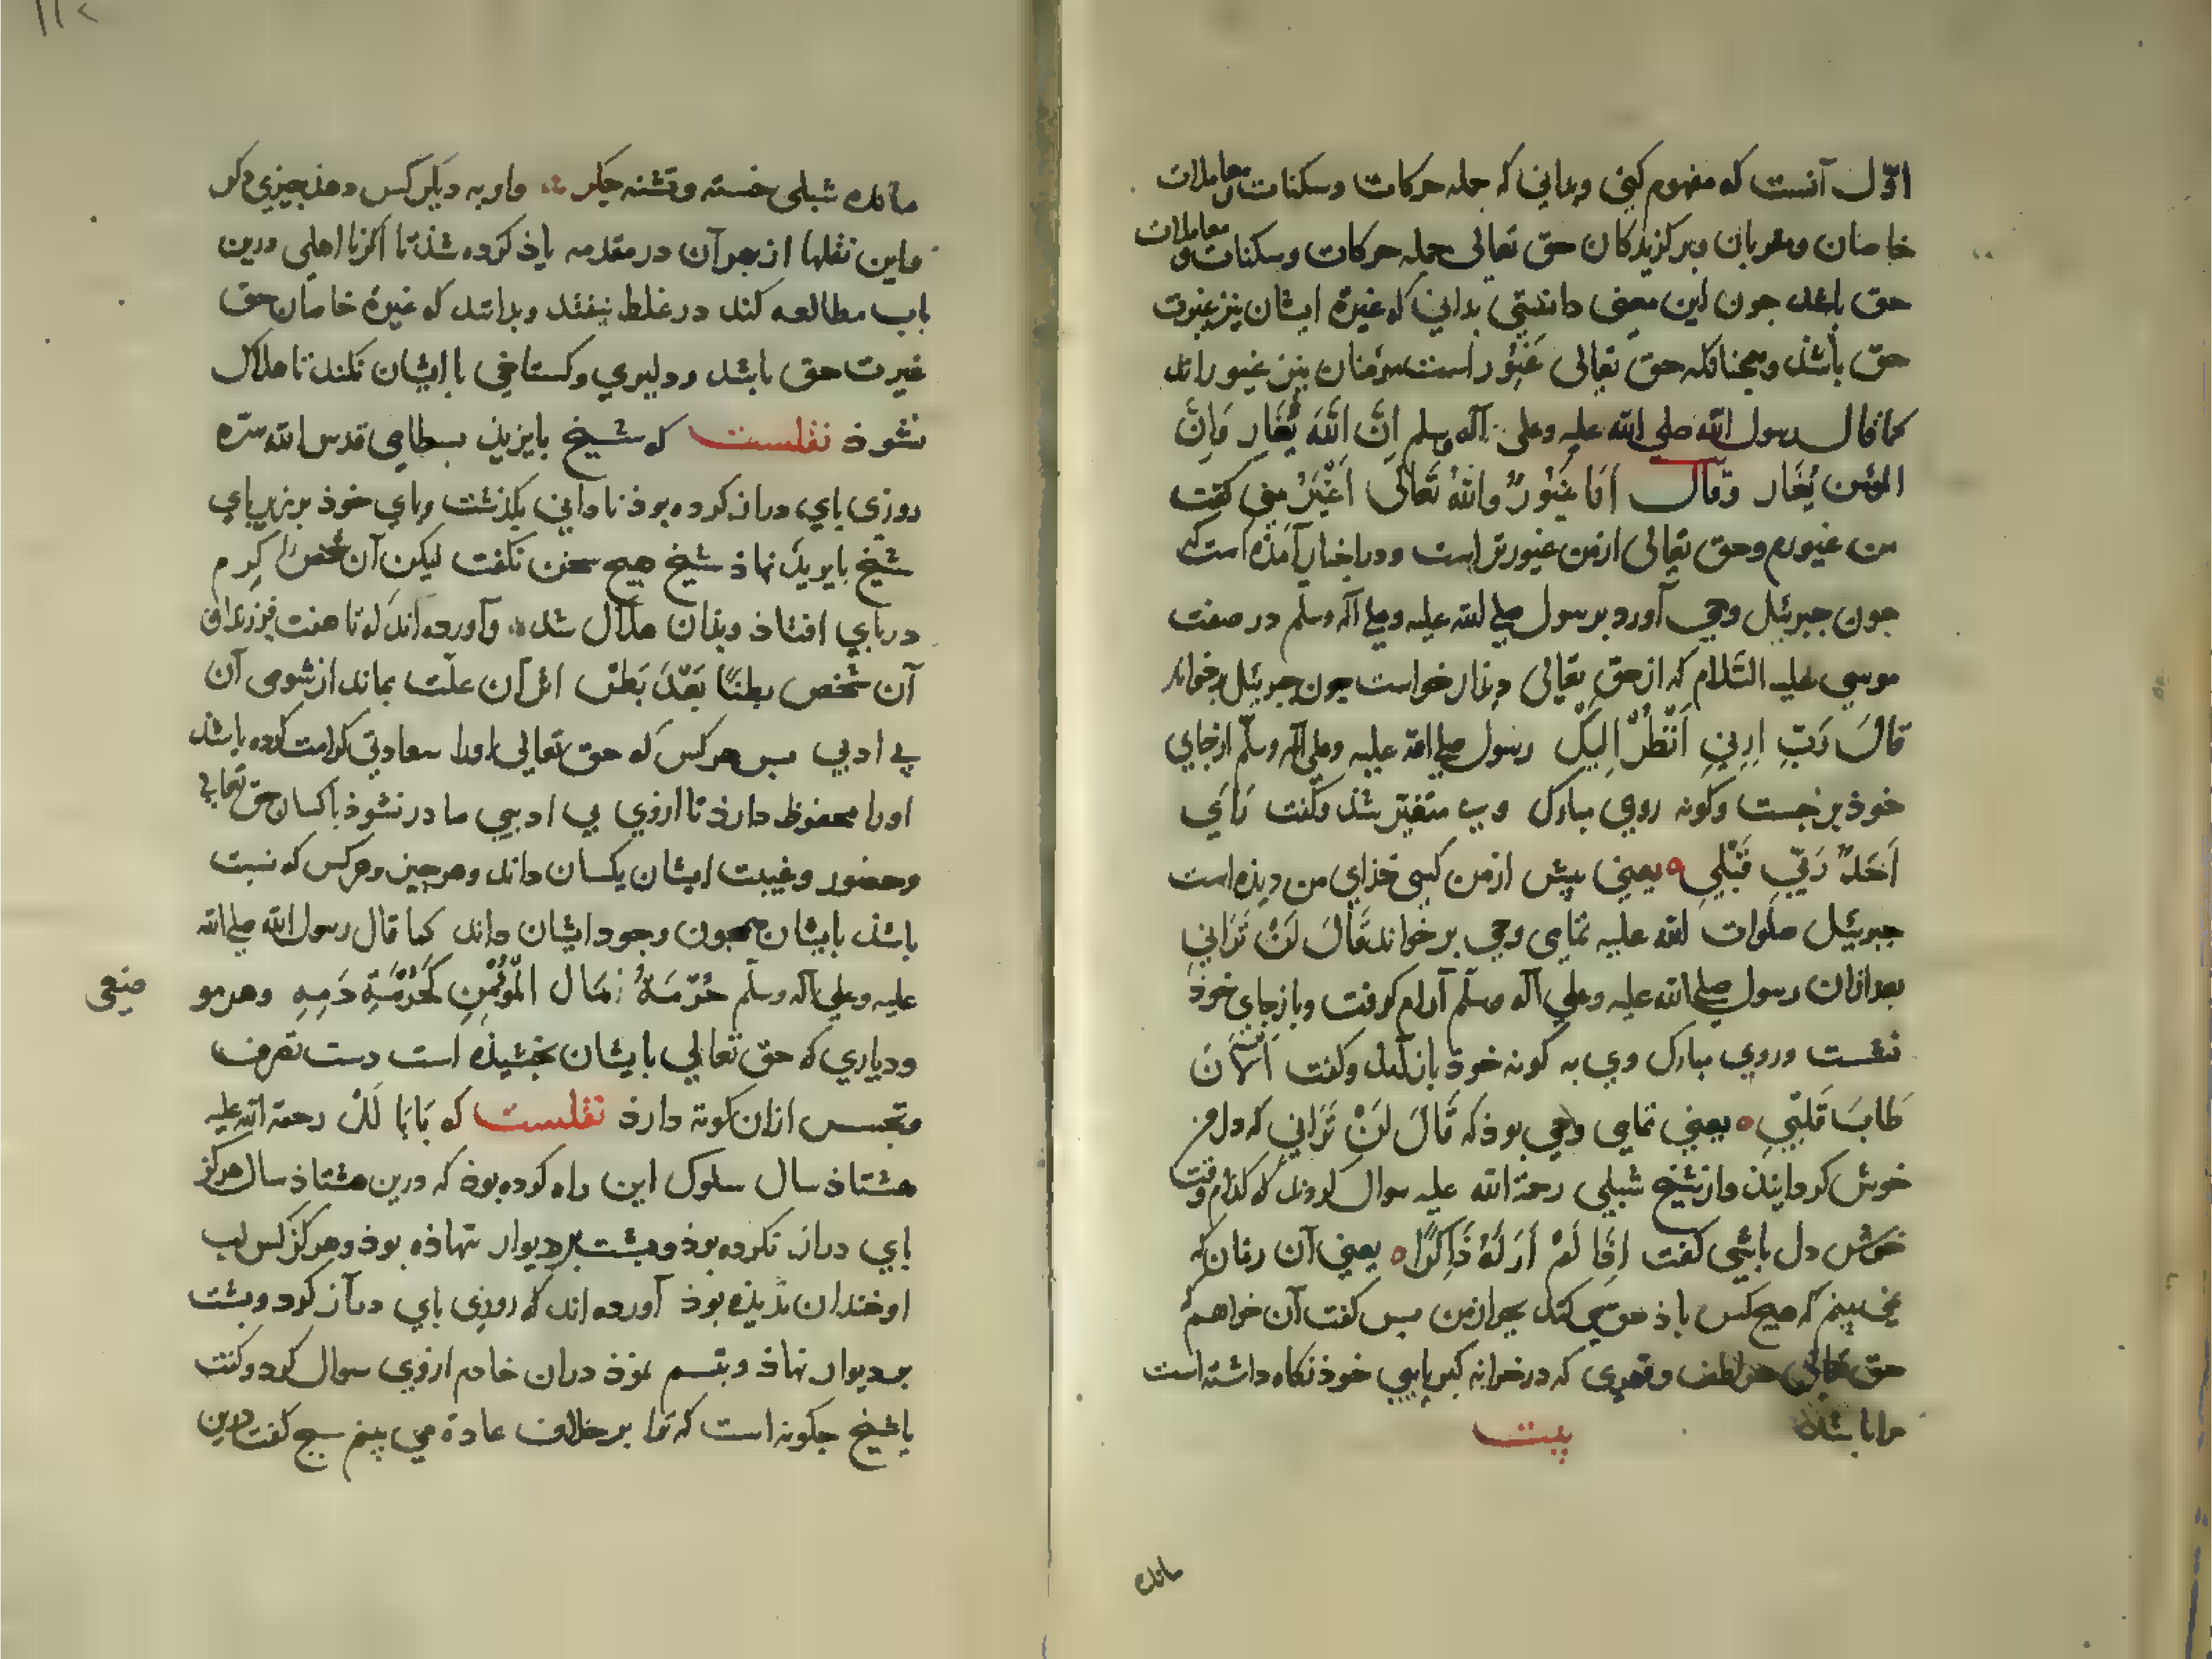 اوّل آنست که مفهوم کنی وبدانی که جمله حرکات وسکنات ومعاملات
خاصان ومقربان وبرکزیدکان حق تعالی جمله حرکات وسکنات ومعاملات
حق باشد جون این معنی دانستی بدانی که غیرة ایشان نیز غیرت
حق باشذ وهمجنانکه حق تعالی غَیُور است مؤمنان نیز غیور اند
کما قال رسول الله صلی الله علیه وعلی آله وسلم اِنَّ اللَّهَ یُغَار وَاِنَّ
المؤمن یُغَار وقال اَنَا غَیُورٌ واللهُ تَعَالَی اَغْیَرُ منی کفت
من غیورم وحق تعالی ازمن غیورتر است ودر اخبار آمذه است که
جون جبرئیل وحی آورد بر رسول صلی الله علیه وعلی آله وسلّم در صفت
موسی علیه السّلام که از حق تعالی دیذار خواست جون جبرئیل بر خواند
قالَ رَبِّ اَرِنِی اَنْظُرْ اِلَیْکَ رسول صلی الله علیه وعلی آله وسلّم ازجای
خوذ برجست وکونه روی مبارک وی متغیّر شذ وکفت رَاَی
اَحَدٌ رَبِّی قَبْلِی یعنی پیش ازمن کسی خذای من دیذه است
جبرئیل صلوات الله علیه تمامی وحی بر خواند قَالَ لَنْ تَرَانِی
بعد ازان رسول صلی الله علیه وعلی آله وسلّم آرام کرفت وبازجای خوذ
نشست وروی مبارک وی به کونه خوذ باز آمد وکفت اَلْآنَ
طَابَ قَلْبِی یعنی تمامی وحی بوذ که قَالَ لَنْ تَرَانِی که دل من
خوش کردانیذ واز شیخ شبلی رحمة الله علیه سوال کردند که کدام وقت
خوش دل باشی کفت اِذَا لَمْ اَرَ لَهُ ذَاکِرًا یعنی آن زمان که
می بینم که هیج کس یاذ حق نمی کند بجز ازمن بس کفت آن خواهم که
حق تعالی هر لطف وقهری که در خزانه کبریایی خوذ نکاه داشته است
مرا باشد بیت
مانده
مانده شبلی خسته وتشنه جکر واو به دیکر کس دهذ جیزی دکر
واین نقلها از بهر آن در مقدمه یاذ کرده شذ تا اکر نا اهلی درین
باب مطالعه کند در غلط نیفتد وبداند که غیرة خاصان حق
غیرت حق باشد ودلیری وکستاخی با ایشان نکند تا هلاک
نشوذ نقلست که شیخ بایزیذ بسطامی قدس الله سرّه
روزی بای دراز کرده بوذ نادانی بکذشت وبای خوذ بر زبر بای
شیخ بایزید نهاذ شیخ هیج سخن نکفت لیکن آن شخص را کرم
در بای افتاذ وبدان هلاک شد وآورده اند که تا هفت فرزندان
آن شخص بطنًا بَعْدَ بَطْنٍ اثر آن علّت بماند از شومی آن
بی ادبی بس هر کس که حق تعالی اورا سعادتی کرامت کرده باشد
اورا محفوظ دارذ تا ازوی بی ادبیی صادر نشوذ با کسان حق تعالی
وحضور وغیبت ایشان یکسان داند وهر جیز وهر کس که نسبت
باشذ بایشان همجون وجود ایشان داند کما قال رسول الله صلی الله
علیه وعلی آله وسلّم حُرْمَةُ مَال الْمُؤْمِنِ کَحُرْمَةِ دَمِهِ وهر مو
ضعی
ودیاری که حق تعالی بایشان بخشیذه است دست تصرف
وتجسس ازان کوته دارذ نقلست که بَابَا لَلْ رحمة الله علیه
هشتاذ سال سلوک این راه کرده بوذ که درین هشتاذ سال هرکز
بای دراز نکرده بوذ وبشت بر دیوار ننهاذه بوذ وهرکز کس لب
او خندان ندیذه بوذ آورده اند که روزی بای دراز کرد وبشت
بر دیوار نهاذ وتبسم نموذ دران خادم ازوی سوال کرد وکفت
یا شیخ جکونه است که ترا بر خلاف عادة می بینم شیخ کفت درین